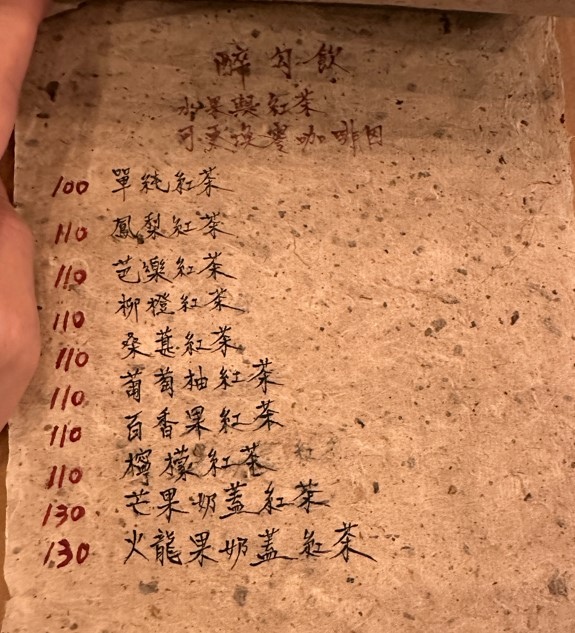 醉勾飲
水果與紅茶
可更換零咖啡因
100 單純紅茶
110 鳳梨紅茶
110 芭樂紅茶
110 柳橙紅茶
110 桑葚紅茶
110 葡萄柚紅茶
110 百香果紅茶
110 檸檬紅茶
130 芒果奶蓋紅茶
130 火龍果奶蓋紅茶